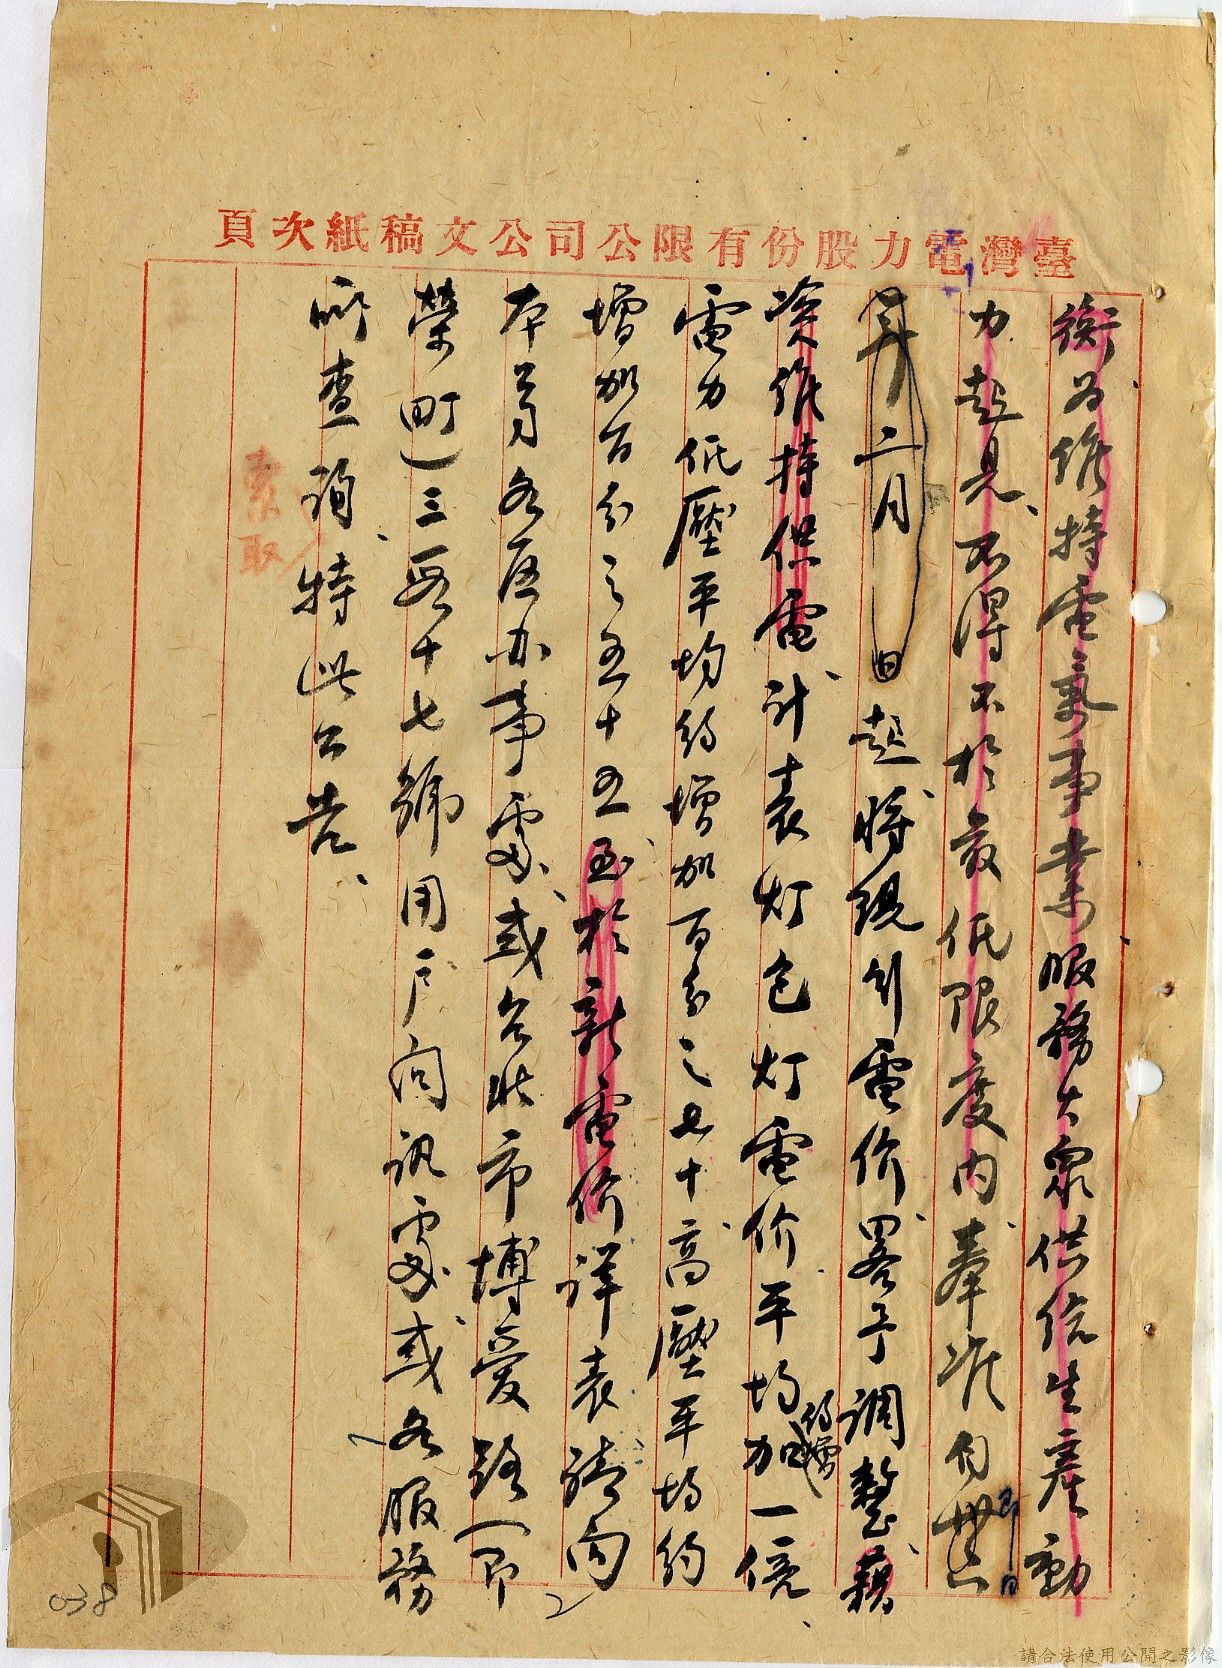 臺灣電力股份有限公司公文稿紙次頁
衡为維持電氣事業服務大眾供給生產動
力起見不得不於最低限度內奉准自卅六
即日
年二月　日起將現行電价畧予調整藉
資維持供電計表灯包灯電价平均加一倍
約增
電力低壓平均約增加百分之七十高壓平均約
增加百分之五十五至於新電價詳表請向
本公司各區办事處或台北市博愛路(即
榮町)三段十七號用戶问訊處或各服務
所查詢特此公告
索取
038
請合法使用公開之影像